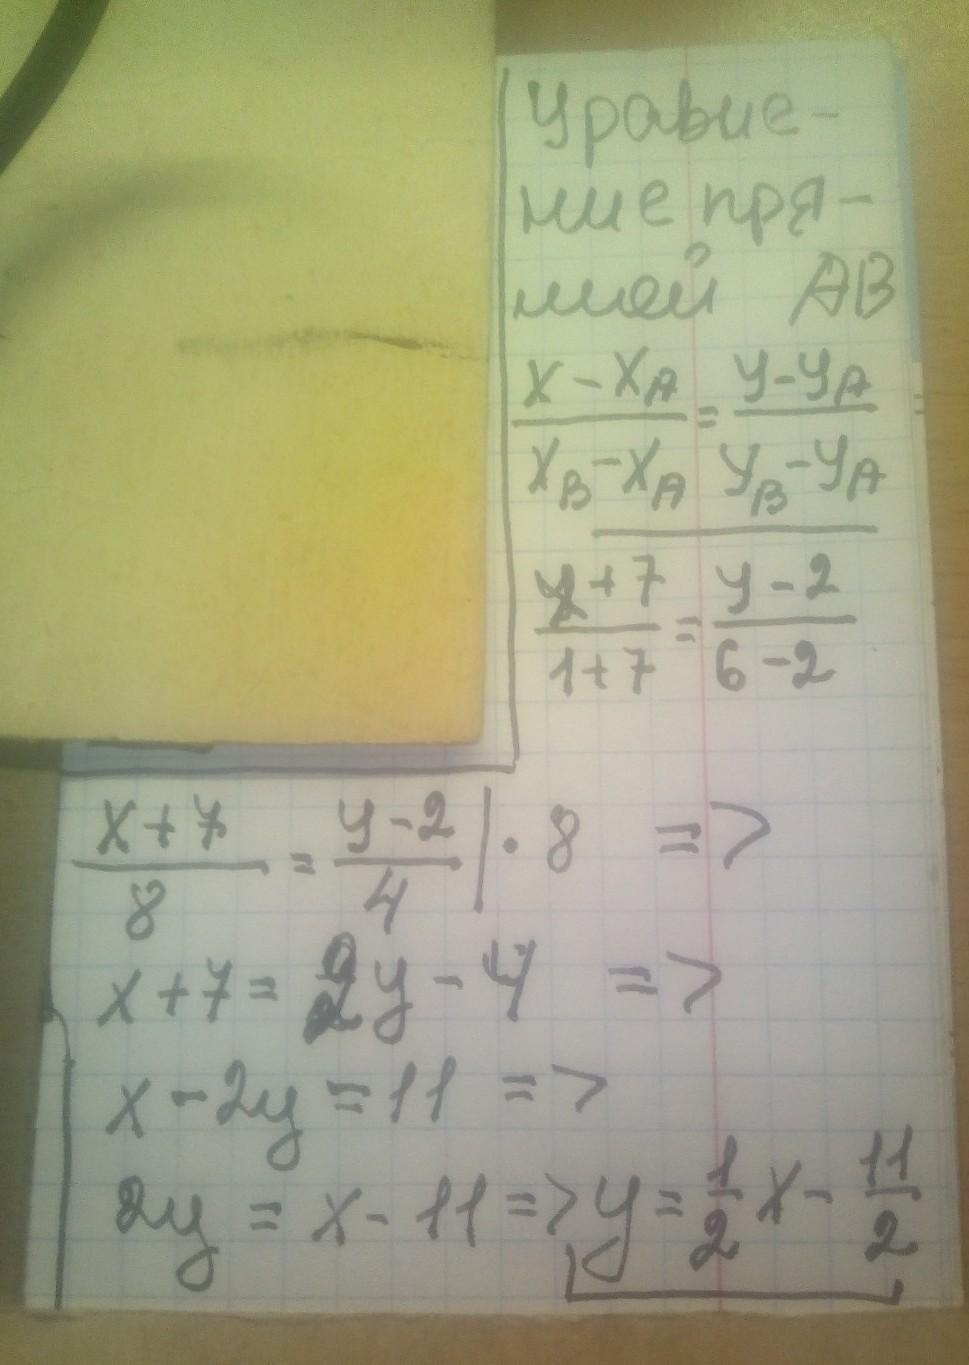 Уравне-
ние пря-
мой AB
(x - x_A)/(x_B - x_A) = (y - y_A)/(y_B - y_A)
(x + 7)/(1 + 7) = (y - 2)/(6 - 2)
(x + 7)/8 = (y - 2)/4 | · 8 =>
x + 7 = 2y - 4 =>
x - 2y = 11 =>
2y = x - 11 => y = 1/2 x - 11/2